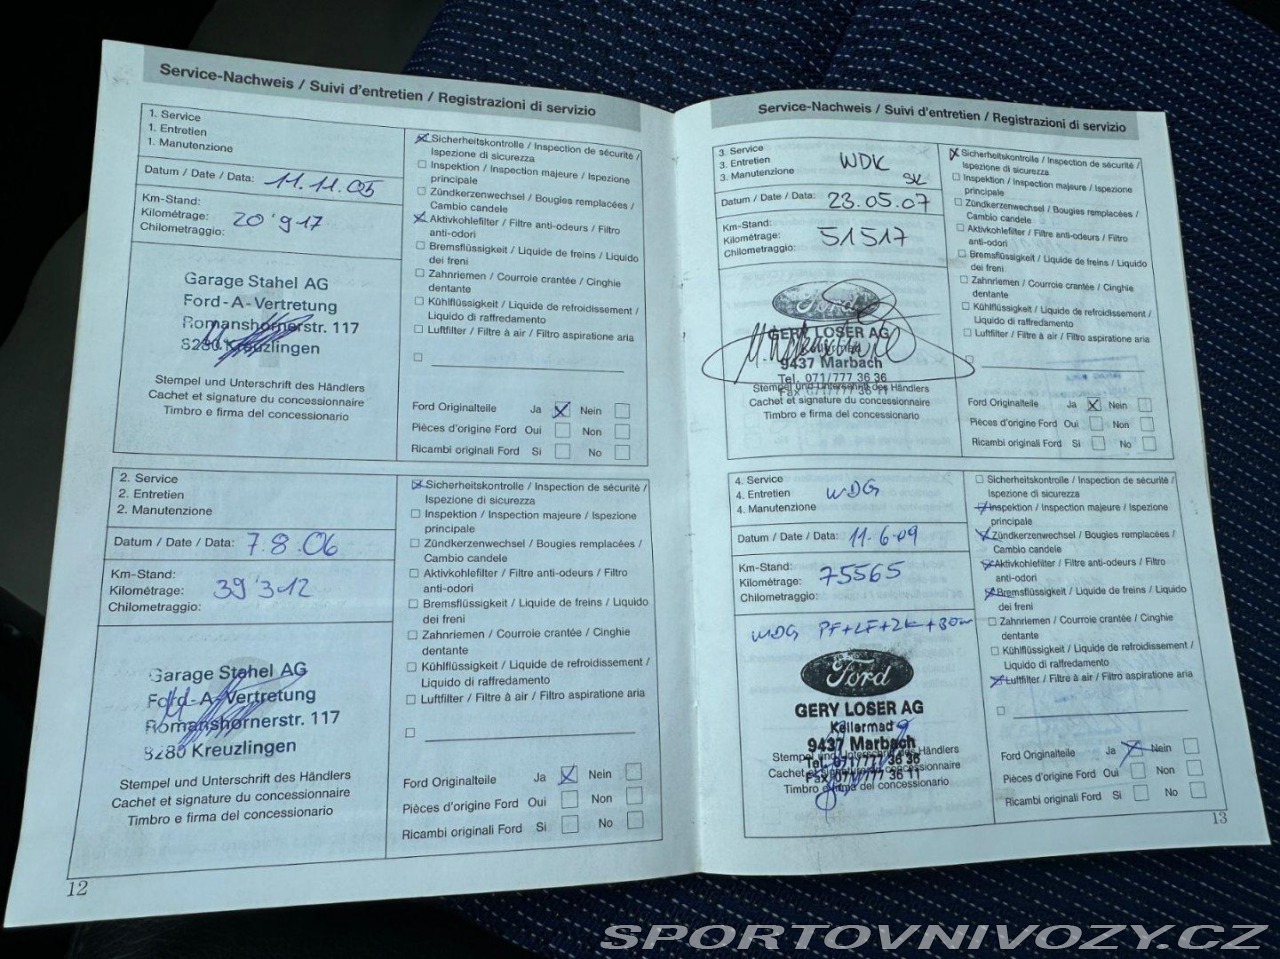 Service-Nachweis / Suivi d'entretien / Registrazioni di servizio
1. Service
1. Entretien
1. Manutenzione
Datum / Date / Data: 11.11.05
Km-Stand:
Kilométrage: 20'917
Chilometraggio:
Garage Stahel AG
Ford-A-Vertretung
Romanshornerstr. 117
8280 Kreuzlingen
Stempel und Unterschrift des Händlers
Cachet et signature du concessionnaire
Timbro e firma del concessionario
Sicherheitskontrolle / Inspection de sécurité /
Ispezione di sicurezza
Inspektion / Inspection majeure / Ispezione
principale
Zündkerzenwechsel / Bougies remplacées /
Cambio candele
Aktivkohlefilter / Filtre anti-odeurs / Filtro
anti-odori
Bremsflüssigkeit / Liquide de freins / Liquido
dei freni
Zahnriemen / Courroie crantée / Cinghie
dentante
Kühlflüssigkeit / Liquide de refroidissement /
Liquido di raffredamento
Luftfilter / Filtre à air / Filtro aspiratione aria
Ford Originalteile Ja Nein
Pièces d'origine Ford Oui Non
Ricambi originali Ford Si No
2. Service
2. Entretien
2. Manutenzione
Datum / Date / Data: 7.8.06
Km-Stand:
Kilométrage: 39'312
Chilometraggio:
Garage Stahel AG
Ford-A-Vertretung
Romanshornerstr. 117
8280 Kreuzlingen
Stempel und Unterschrift des Händlers
Cachet et signature du concessionnaire
Timbro e firma del concessionario
Sicherheitskontrolle / Inspection de sécurité /
Ispezione di sicurezza
Inspektion / Inspection majeure / Ispezione
principale
Zündkerzenwechsel / Bougies remplacées /
Cambio candele
Aktivkohlefilter / Filtre anti-odeurs / Filtro
anti-odori
Bremsflüssigkeit / Liquide de freins / Liquido
dei freni
Zahnriemen / Courroie crantée / Cinghie
dentante
Kühlflüssigkeit / Liquide de refroidissement /
Liquido di raffredamento
Luftfilter / Filtre à air / Filtro aspiratione aria
Ford Originalteile Ja Nein
Pièces d'origine Ford Oui Non
Ricambi originali Ford Si No
12
Service-Nachweis / Suivi d'entretien / Registrazioni di servizio
3. Service
3. Entretien WDK
3. Manutenzione SK
Datum / Date / Data: 23.05.07
Km-Stand:
Kilométrage: 51517
Chilometraggio:
Ford
GERY LOSER AG
9437 Marbach
Tel. 071/777 36 36
Fax 071/777 36 11
Stempel und Unterschrift des Händlers
Cachet et signature du concessionnaire
Timbro e firma del concessionario
Sicherheitskontrolle / Inspection de sécurité /
Ispezione di sicurezza
Inspektion / Inspection majeure / Ispezione
principale
Zündkerzenwechsel / Bougies remplacées /
Cambio candele
Aktivkohlefilter / Filtre anti-odeurs / Filtro
anti-odori
Bremsflüssigkeit / Liquide de freins / Liquido
dei freni
Zahnriemen / Courroie crantée / Cinghie
dentante
Kühlflüssigkeit / Liquide de refroidissement /
Liquido di raffredamento
Luftfilter / Filtre à air / Filtro aspiratione aria
Ford Originalteile Ja Nein
Pièces d'origine Ford Oui Non
Ricambi originali Ford Si No
4. Service
4. Entretien WDG
4. Manutenzione
Datum / Date / Data: 11.6.09
Km-Stand:
Kilométrage: 75565
Chilometraggio:
WDG PF+LF+ZK+
Ford
GERY LOSER AG
Kellermad 9
9437 Marbach
Tel. 071/777 36 36
Fax 071/777 36 11
Stempel und Unterschrift des Händlers
Cachet et signature du concessionnaire
Timbro e firma del concessionario
Sicherheitskontrolle / Inspection de sécurité /
Ispezione di sicurezza
Inspektion / Inspection majeure / Ispezione
principale
Zündkerzenwechsel / Bougies remplacées /
Cambio candele
Aktivkohlefilter / Filtre anti-odeurs / Filtro
anti-odori
Bremsflüssigkeit / Liquide de freins / Liquido
dei freni
Zahnriemen / Courroie crantée / Cinghie
dentante
Kühlflüssigkeit / Liquide de refroidissement /
Liquido di raffredamento
Luftfilter / Filtre à air / Filtro aspiratione aria
Ford Originalteile Ja Nein
Pièces d'origine Ford Oui Non
Ricambi originali Ford Si No
13
SPORTOVNIVOZY.CZ